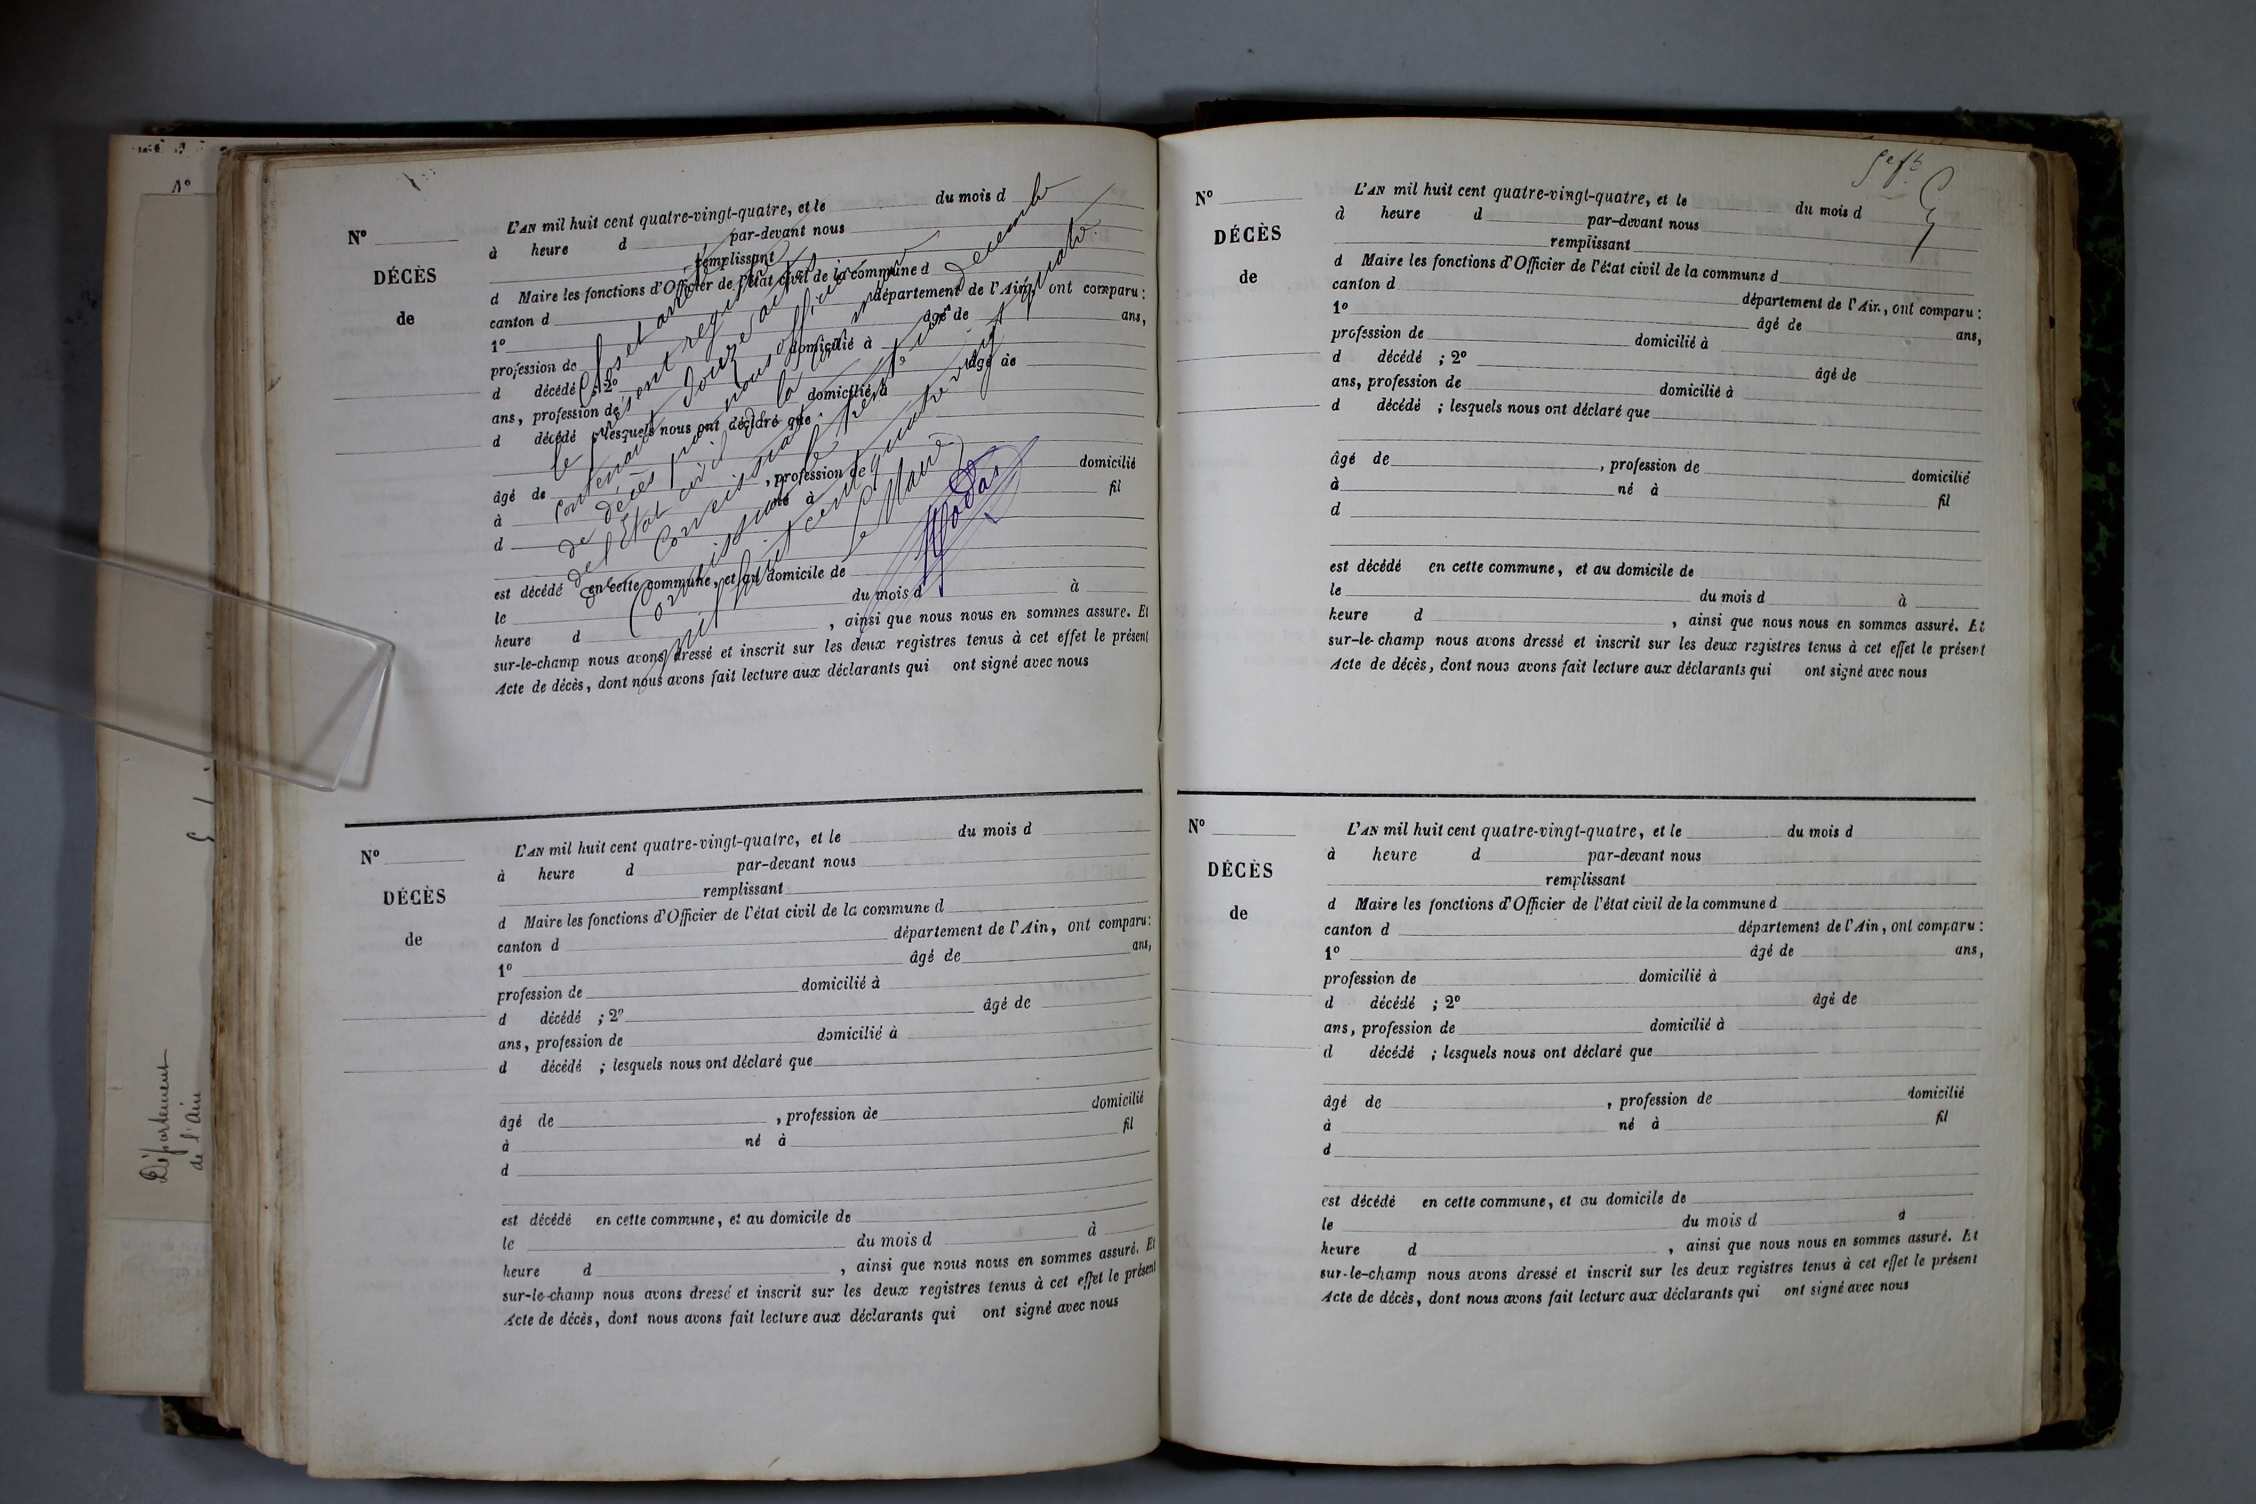 Nº
DÉCÈS
de
L'AN mil huit cent quatre-vingt-quatre, et le du mois d
à heure d par-devant nous
remplissant
d Maire les fonctions d'Officier de l'état civil de la commune d
canton d département de l'Ain, ont comparu :
1º âgé de ans,
profession de domicilié à
d décédé ; 2º âgé de
ans, profession de domicilié à
d décédé ; lesquels nous ont déclaré que
âgé de , profession de domicilié
à né à fil
d
est décédé en cette commune, et au domicile de
le du mois d à
heure d , ainsi que nous nous en sommes assuré. Et
sur-le-champ nous avons dressé et inscrit sur les deux registres tenus à cet effet le présent
Acte de décès, dont nous avons fait lecture aux déclarants qui ont signé avec nous
Clos et arrêté
le présent registre
contenant douze actes
de décès par nous officier
de l'Etat civil de la commune
de Corveissiat
Corveissiat le trente-un décembre
mil huit cent quatre vingt quatre.
Le Maire
Nº
DÉCÈS
de
L'AN mil huit cent quatre-vingt-quatre, et le du mois d
à heure d par-devant nous
remplissant
d Maire les fonctions d'Officier de l'état civil de la commune d
canton d département de l'Ain, ont comparu :
1º âgé de ans,
profession de domicilié à
d décédé ; 2º âgé de
ans, profession de domicilié à
d décédé ; lesquels nous ont déclaré que
âgé de , profession de domicilié
à né à fil
d
est décédé en cette commune, et au domicile de
le du mois d à
heure d , ainsi que nous nous en sommes assuré. Et
sur-le-champ nous avons dressé et inscrit sur les deux registres tenus à cet effet le présent
Acte de décès, dont nous avons fait lecture aux déclarants qui ont signé avec nous
Département
de l'Ain
Nº
DÉCÈS
de
L'AN mil huit cent quatre-vingt-quatre, et le du mois d
à heure d par-devant nous
remplissant
d Maire les fonctions d'Officier de l'état civil de la commune d
canton d département de l'Ain, ont comparu :
1º âgé de ans,
profession de domicilié à
d décédé ; 2º âgé de
ans, profession de domicilié à
d décédé ; lesquels nous ont déclaré que
âgé de , profession de domicilié
à né à fil
d
est décédé en cette commune, et au domicile de
le du mois d à
heure d , ainsi que nous nous en sommes assuré. Et
sur-le-champ nous avons dressé et inscrit sur les deux registres tenus à cet effet le présent
Acte de décès, dont nous avons fait lecture aux déclarants qui ont signé avec nous
Nº
DÉCÈS
de
L'AN mil huit cent quatre-vingt-quatre, et le du mois d
à heure d par-devant nous
remplissant
d Maire les fonctions d'Officier de l'état civil de la commune d
canton d département de l'Ain, ont comparu :
1º âgé de ans,
profession de domicilié à
d décédé ; 2º âgé de
ans, profession de domicilié à
d décédé ; lesquels nous ont déclaré que
âgé de , profession de domicilié
à né à fil
d
est décédé en cette commune, et au domicile de
le du mois d à
heure d , ainsi que nous nous en sommes assuré. Et
sur-le-champ nous avons dressé et inscrit sur les deux registres tenus à cet effet le présent
Acte de décès, dont nous avons fait lecture aux déclarants qui ont signé avec nous